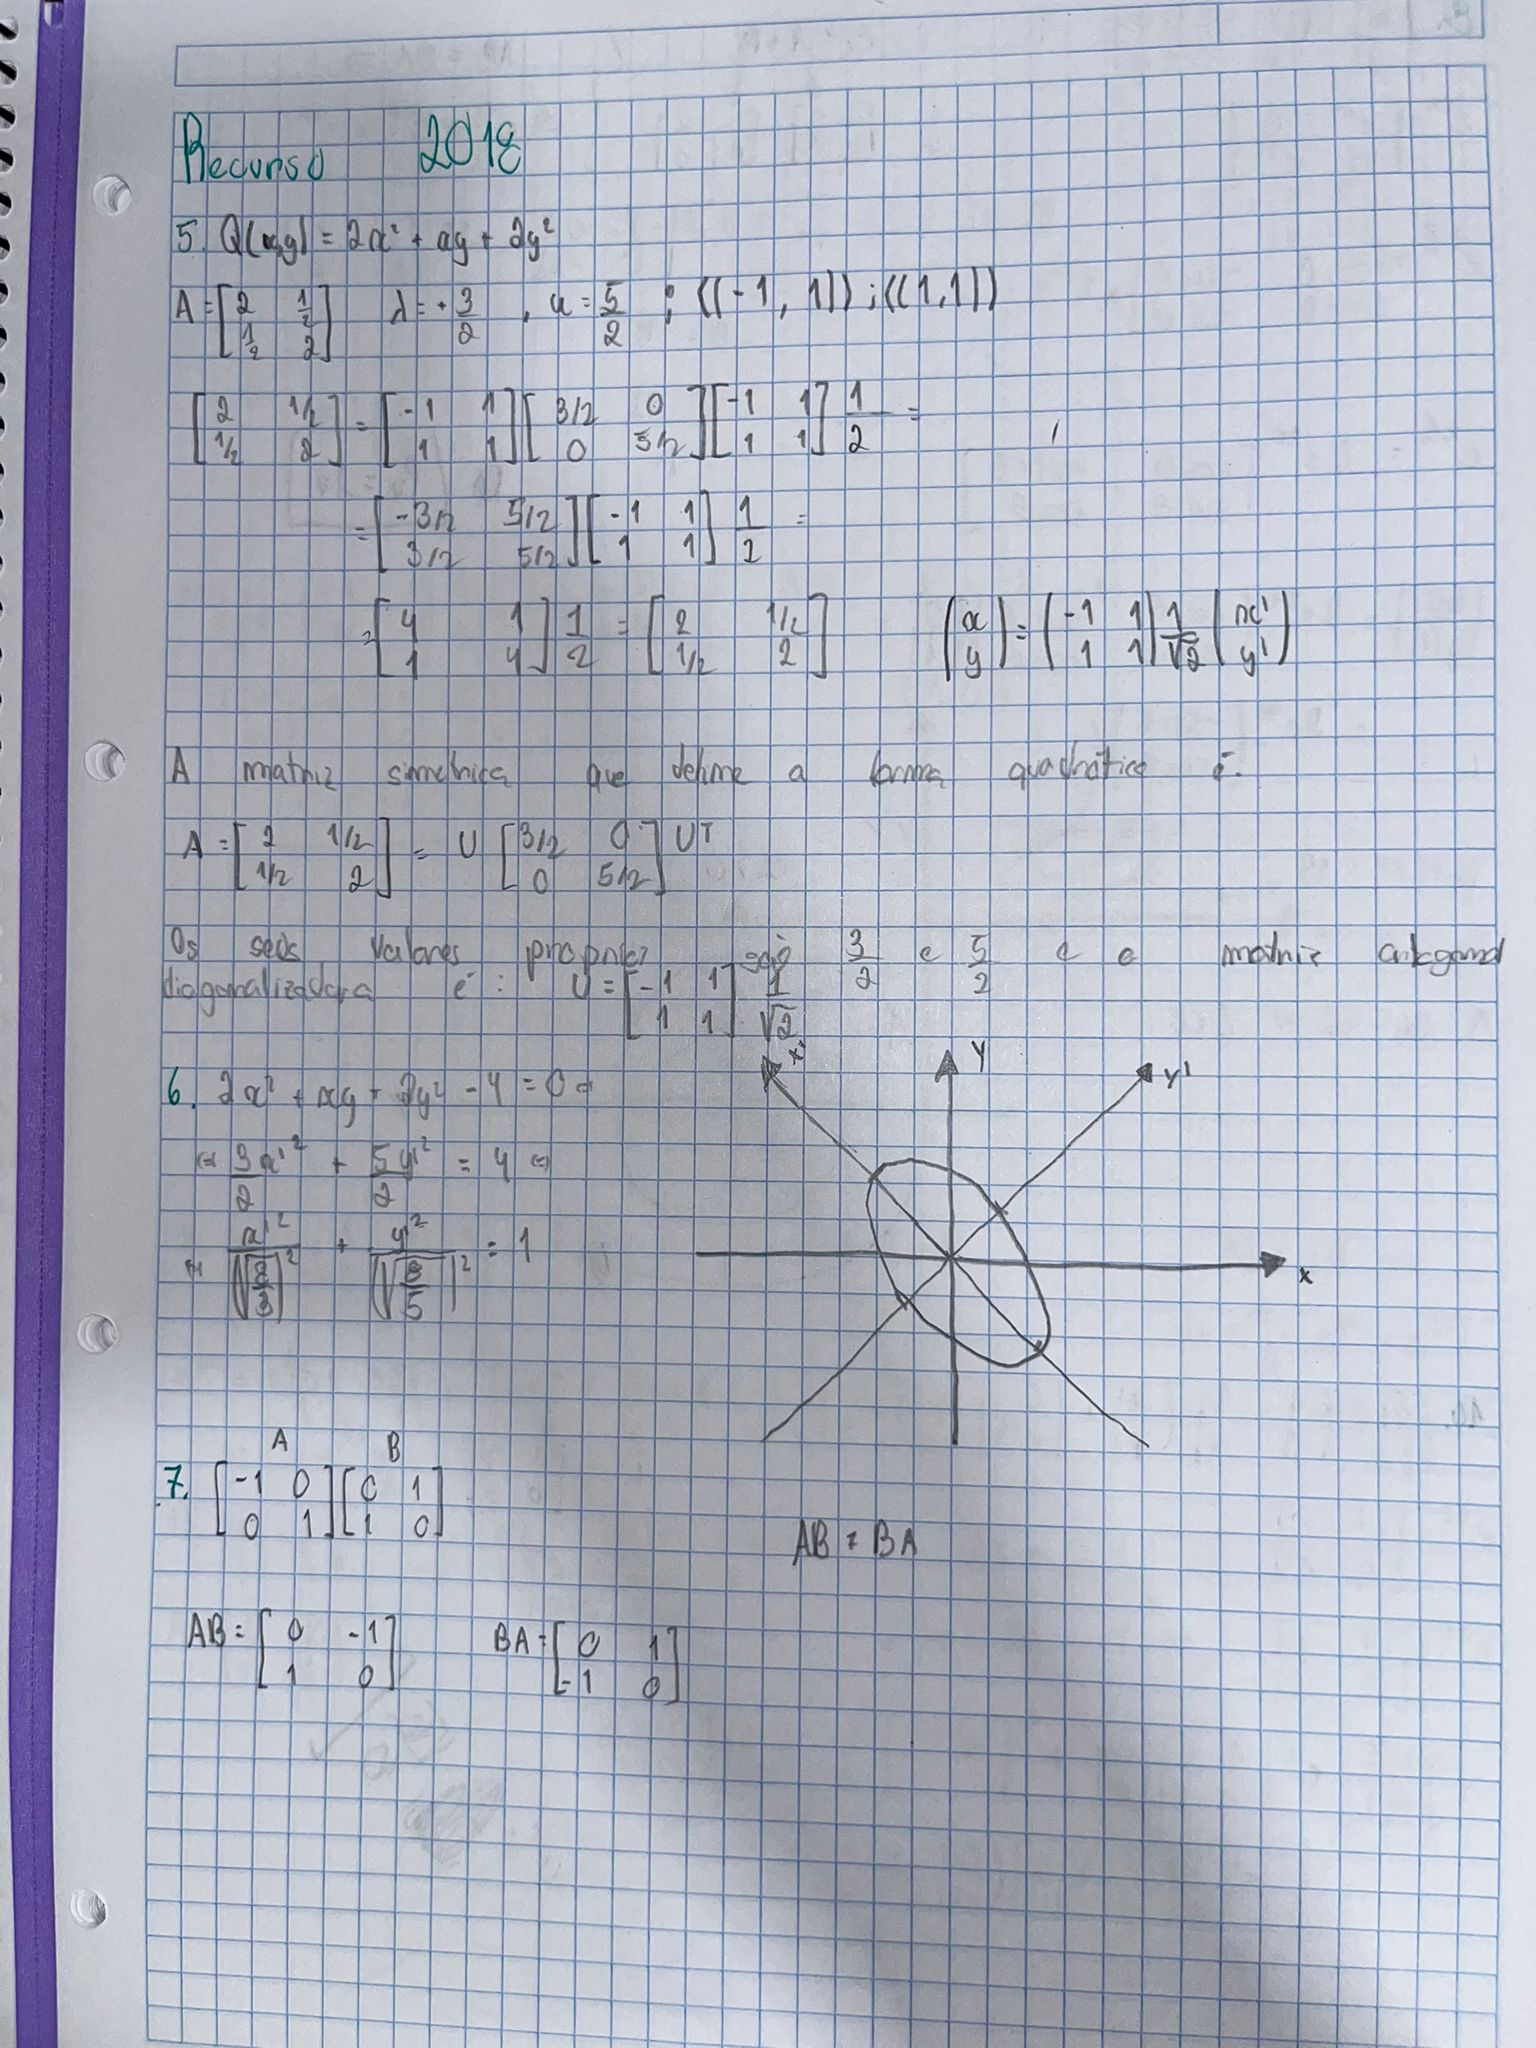 Recurso 2018
5. Q(x,y) = 2x² + xy + 2y²
A = [2 1/2; 1/2 2] λ = + 3/2 , u = 5/2 ; ⟨(-1, 1)⟩ ; ⟨(1,1)⟩
[2 1/2; 1/2 2] = [-1 1; 1 1] [3/2 0; 0 5/2] [-1 1; 1 1] 1/2 =
= [-3/2 5/2; 3/2 5/2] [-1 1; 1 1] 1/2 =
= [4 1; 1 4] 1/2 = [2 1/2; 1/2 2] (x; y) = (-1 1; 1 1) 1/√2 (x'; y')
A matriz simetrica que define a forma quadrática é:
A = [2 1/2; 1/2 2] = U [3/2 0; 0 5/2] UT
Os seus valores proprios são 3/2 e 5/2 e a matriz ortogonal
diagonalizadora é : U = [-1 1; 1 1] 1/√2
6. 2x² + xy + 2y² - 4 = 0 ⇔
⇔ 3/2 x'² + 5/2 y'² = 4 ⇔
⇔ x'²/(√(8/3))² + y'²/(√(8/5))² = 1
x'
Y
Y'
x
A B
7. [-1 0; 0 1] [0 1; 1 0]
AB ≠ BA
AB = [0 -1; 1 0] BA = [0 1; -1 0]